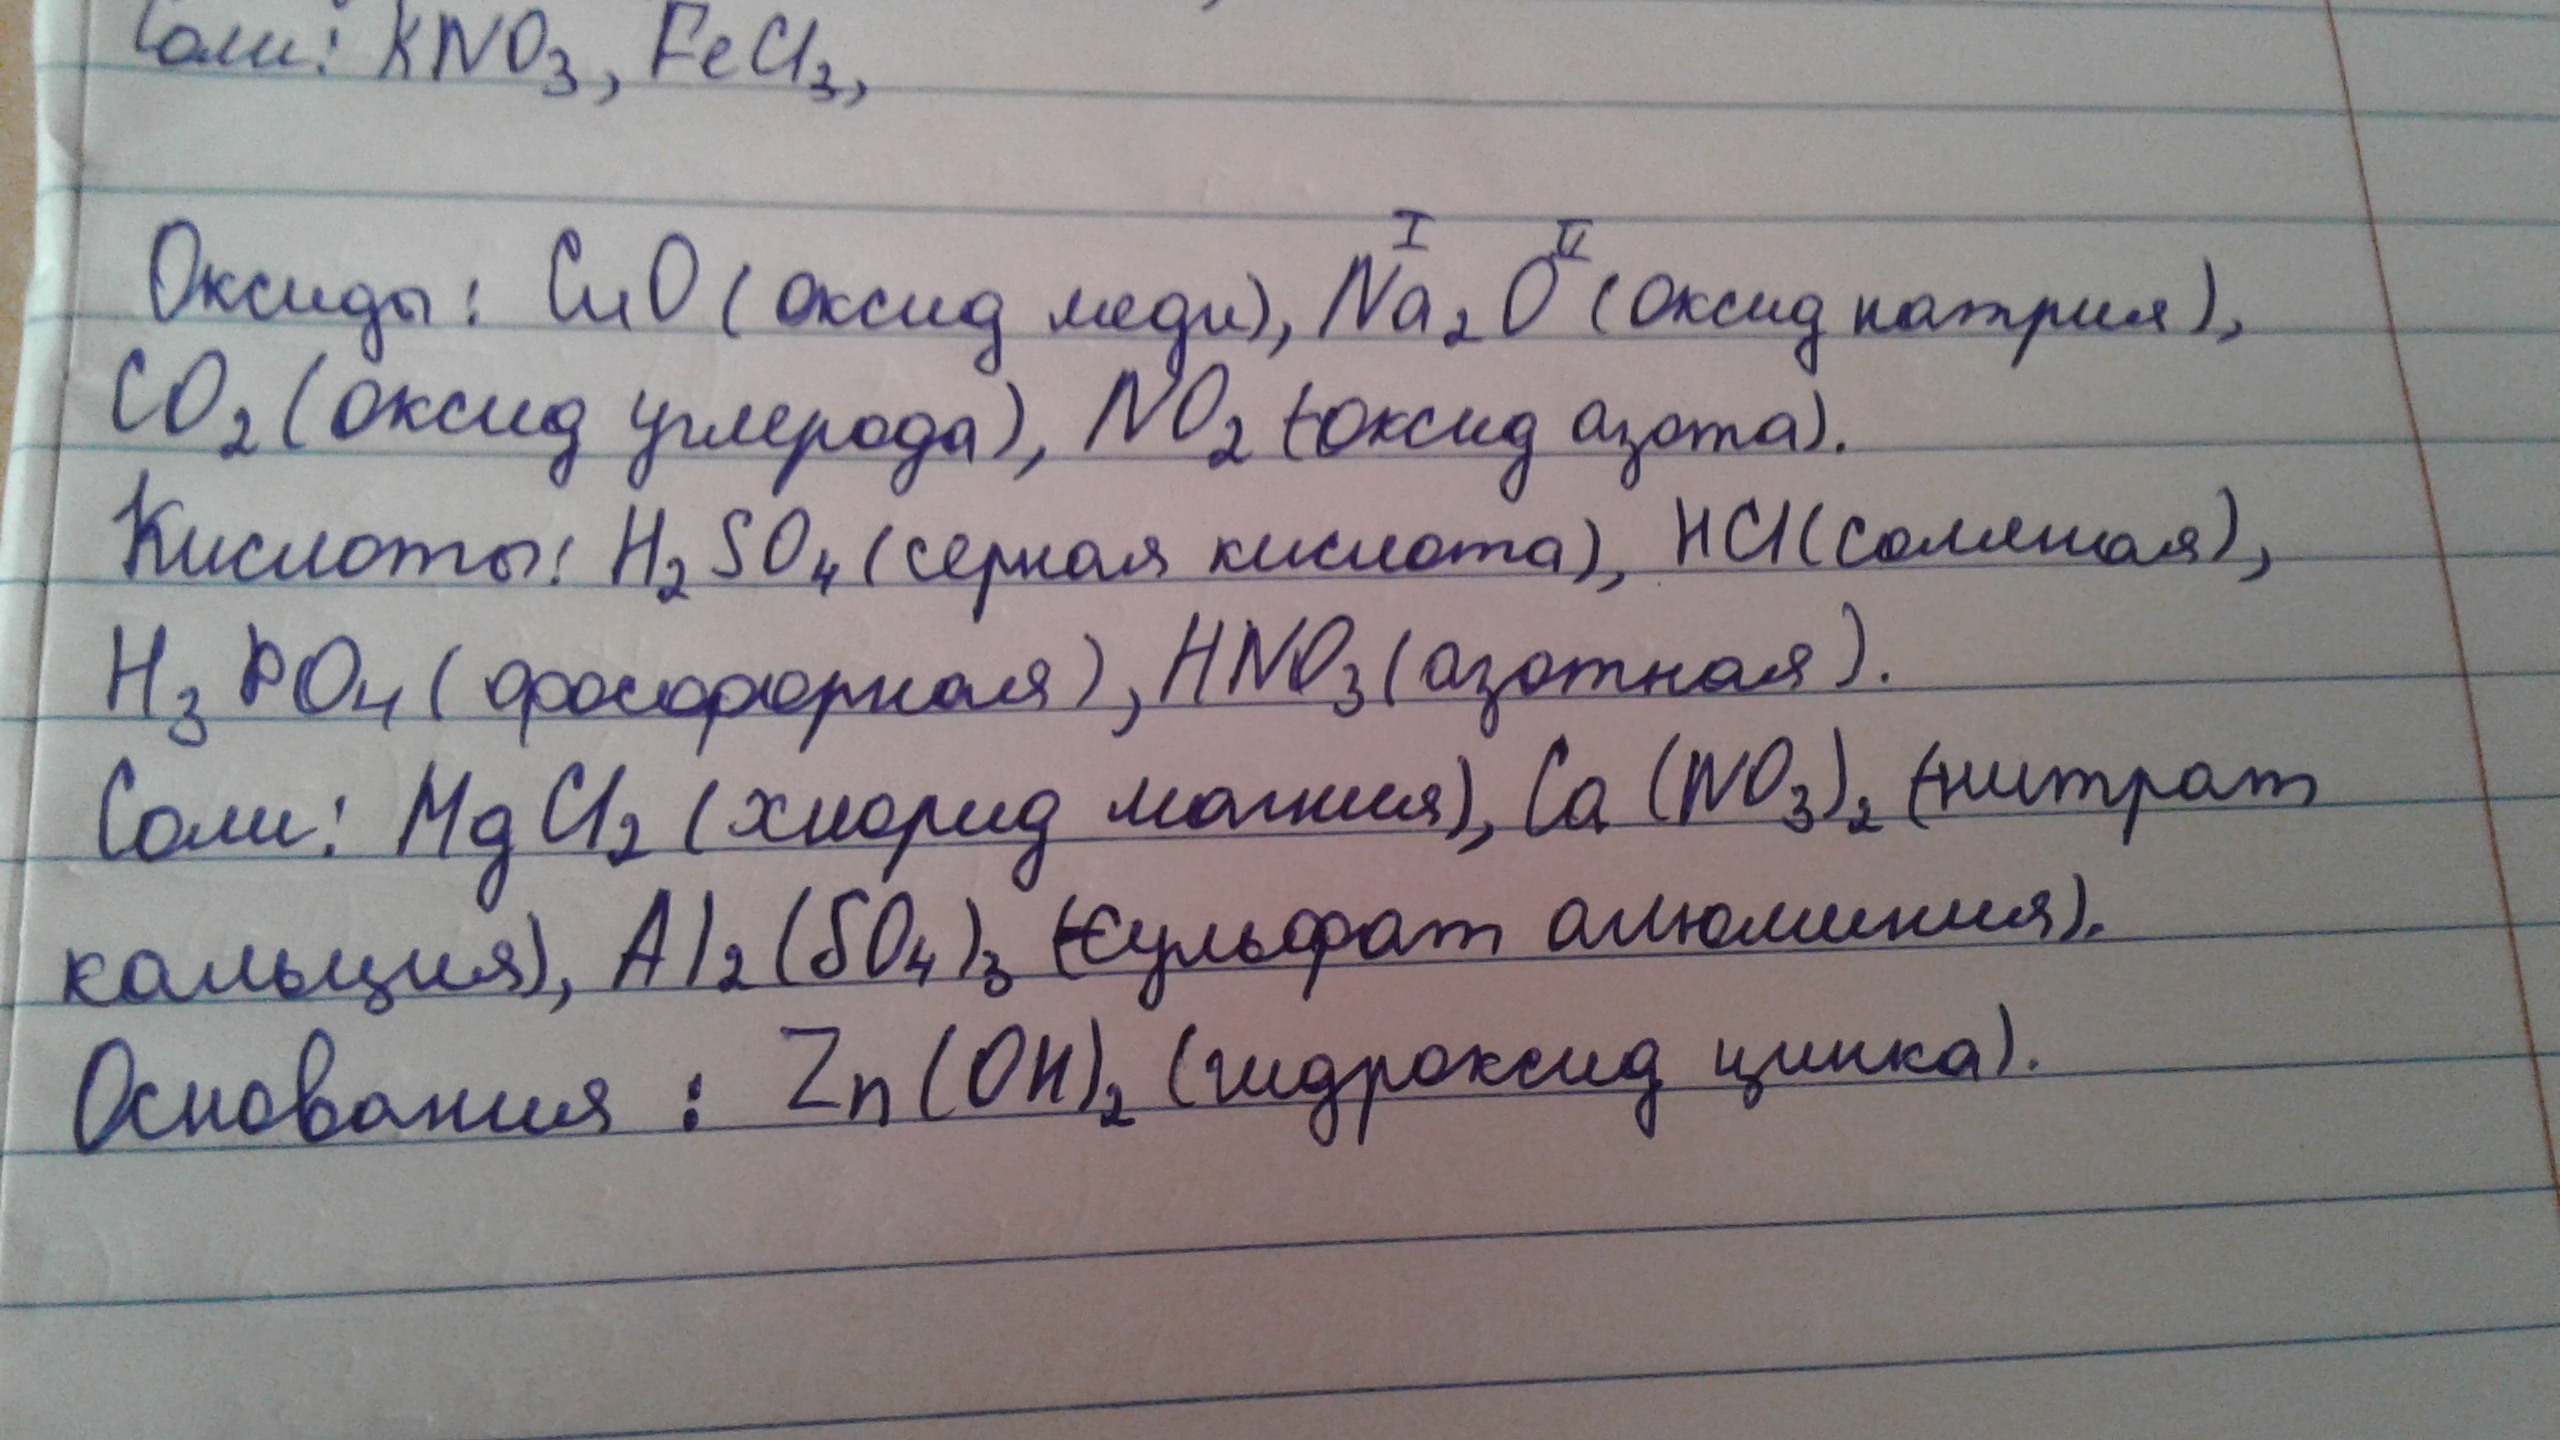 Соли: KNO₃, FeCl₃,
I II
Оксиды: CuO (оксид меди), Na₂O (оксид натрия),
CO₂ (оксид углерода), NO₂ (оксид азота).
Кислоты: H₂SO₄ (серная кислота), HCl (соляная),
H₃PO₄ (фосфорная), HNO₃ (азотная).
Соли: MgCl₂ (хлорид магния), Ca(NO₃)₂ (нитрат
кальция), Al₂(SO₄)₃ (сульфат алюминия).
Основания: Zn(OH)₂ (гидроксид цинка).